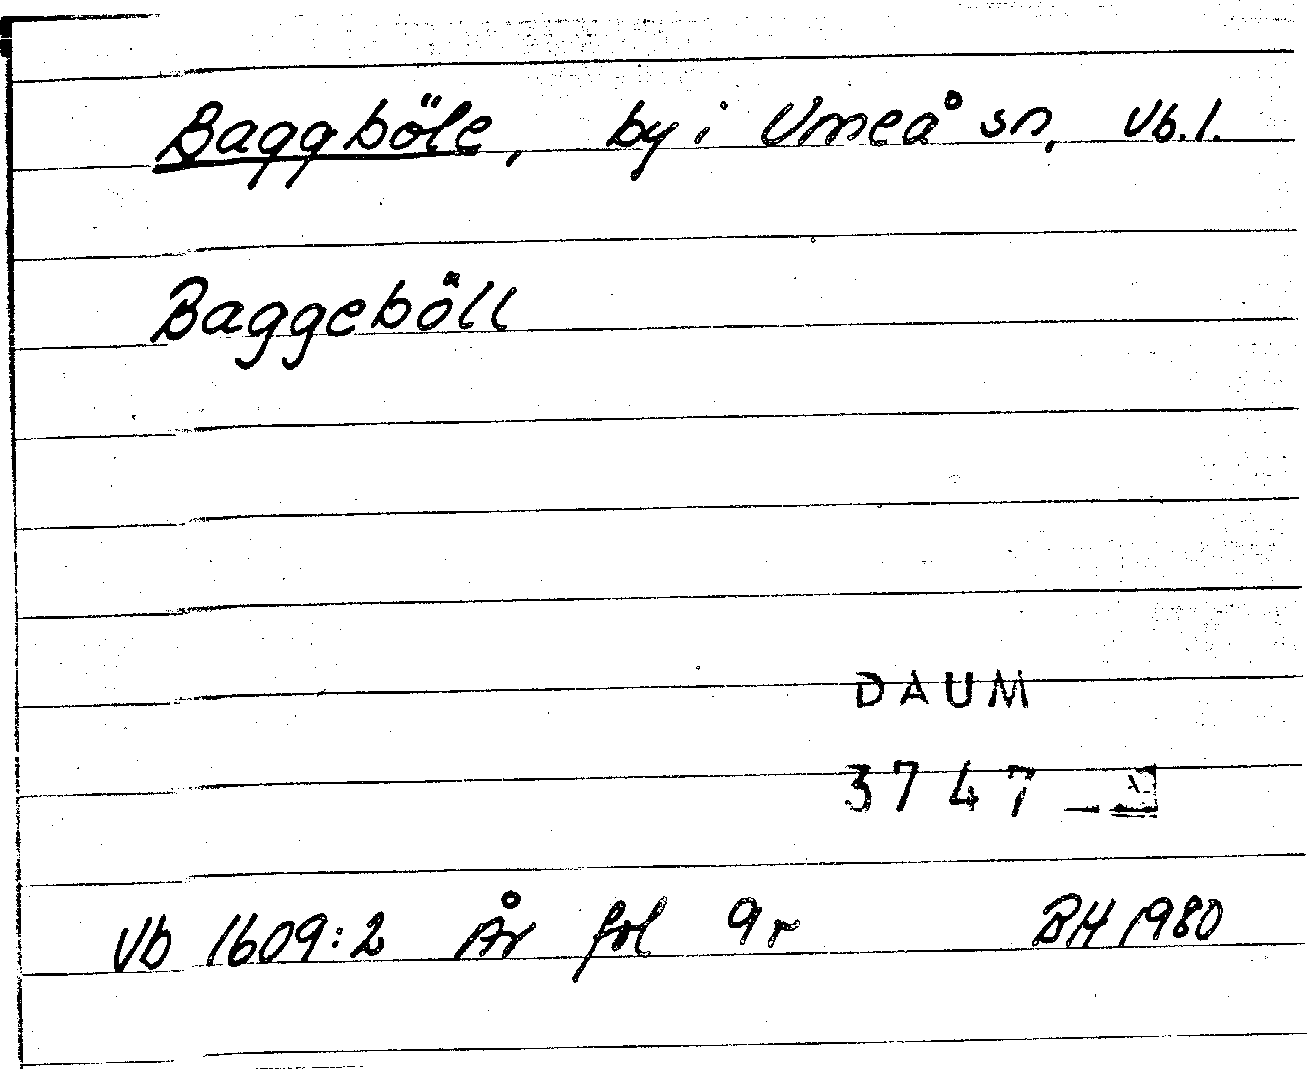 Baggböle, by i Umeå sn, Vb.l.
Baggeböll
DAUM
3747
Vb 1609:2 År fol 9r BH 1980